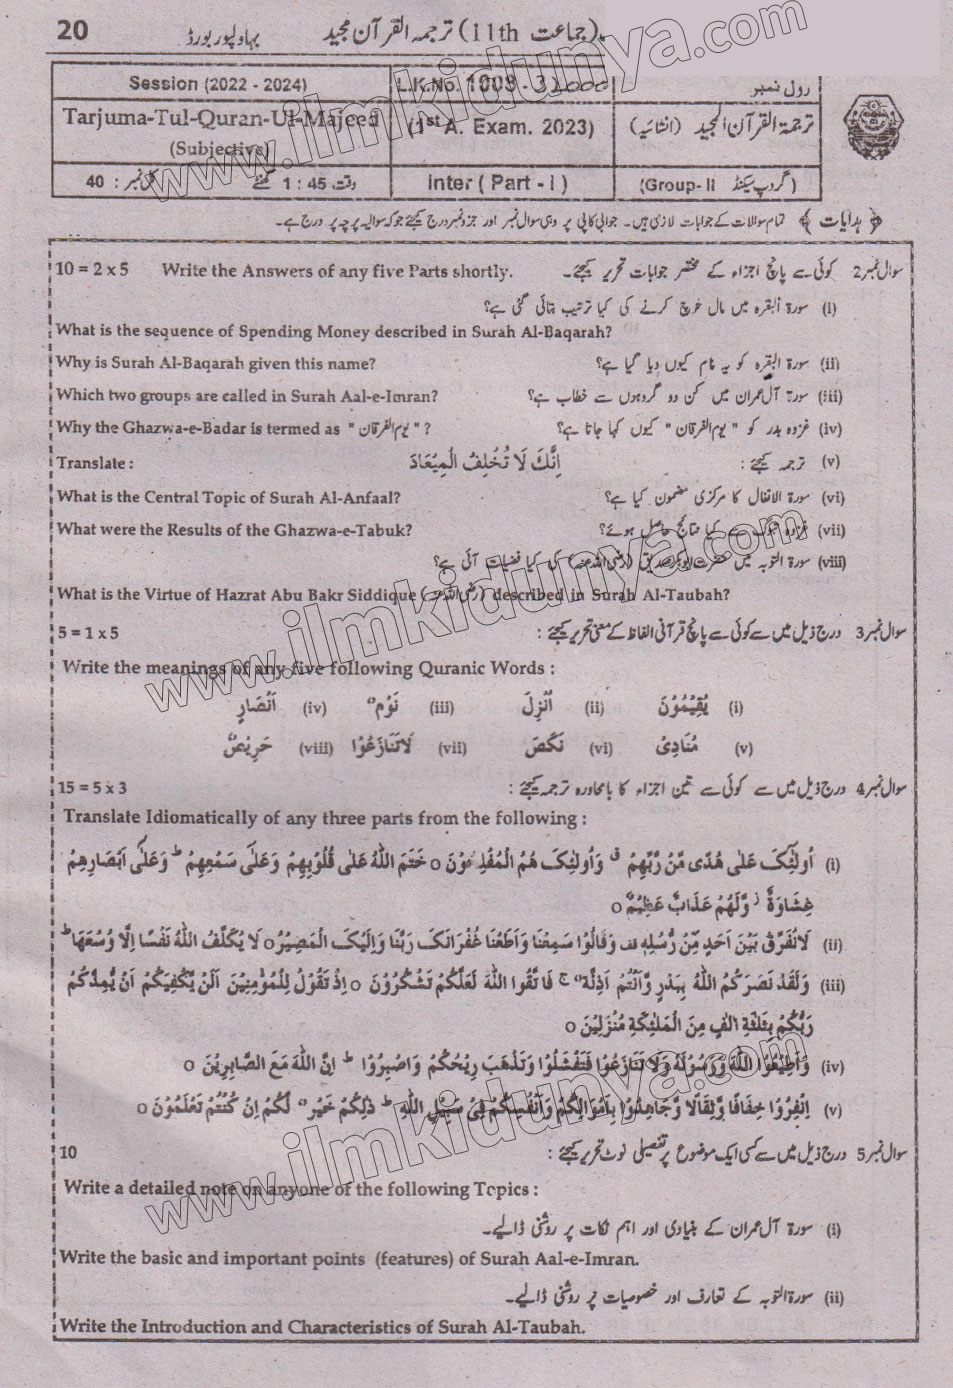 20 بہاولپور بورڈ (جماعت 11th) ترجمہ القرآن مجید
Session (2022 - 2024) L.K.No. 1008 - رول نمبر
Tarjuma-Tul-Quran-Ul-Majeed (1st A. Exam. 2023) ترجمۃ القرآن المجید (انشائیہ)
(Subjective)
کل نمبر : 40 وقت 1 : 45 گھنٹے Inter ( Part - I ) (Group- II گروپ سیکنڈ)
﴿ ہدایات ﴾ تمام سوالات کے جوابات لازمی ہیں۔ جوابی کاپی پر وہی سوال نمبر اور جزو نمبر درج کیجئے جو کہ سوالیہ پرچہ پر درج ہے۔
سوال نمبر 2 کوئی سے پانچ اجزاء کے مختصر جوابات تحریر کیجئے۔ Write the Answers of any five Parts shortly. 10 = 2 x 5
(i) سورۃ البقرہ میں مال خرچ کرنے کی کیا ترتیب بتائی گئی ہے؟
What is the sequence of Spending Money described in Surah Al-Baqarah?
Why is Surah Al-Baqarah given this name? (ii) سورۃ البقرہ کو یہ نام کیوں دیا گیا ہے؟
Which two groups are called in Surah Aal-e-Imran? (iii) سورۃ آل عمران میں کن دو گروہوں سے خطاب ہے؟
Why the Ghazwa-e-Badar is termed as " یوم الفرقان " ? (iv) غزوہ بدر کو " یوم الفرقان " کیوں کہا جاتا ہے؟
Translate : اِنَّكَ لَا تُخْلِفُ الْمِيْعَادَ (v) ترجمہ کیجئے :
What is the Central Topic of Surah Al-Anfaal? (vi) سورۃ الانفال کا مرکزی مضمون کیا ہے؟
What were the Results of the Ghazwa-e-Tabuk? (vii) غزوہ تبوک سے کیا نتائج حاصل ہوئے؟
(viii) سورۃ التوبہ میں حضرت ابوبکر صدیق (رضی اللہ عنہ) کی کیا فضیلت آئی ہے؟
What is the Virtue of Hazrat Abu Bakr Siddique (رضی اللہ عنہ) described in Surah Al-Taubah?
سوال نمبر 3 درج ذیل میں سے کوئی سے پانچ قرآنی الفاظ کے معنی تحریر کیجئے : 5 = 1 x 5
Write the meanings of any five following Quranic Words :
(i) يُقِيْمُوْنَ (ii) اُنْزِلَ (iii) نَوْمٌ (iv) اَنْصَارٍ
(v) مُنَادِیْ (vi) نَكَصَ (vii) لَا تَنَازَعُوْا (viii) حَرِيْصٌ
سوال نمبر 4 درج ذیل میں سے کوئی سے تین اجزاء کا با محاورہ ترجمہ کیجئے : 15 = 5 x 3
Translate Idiomatically of any three parts from the following :
(i) اُولٰٓئِكَ عَلٰى هُدًى مِّنْ رَّبِّهِمْ ق وَاُولٰٓئِكَ هُمُ الْمُفْلِحُوْنَ o خَتَمَ اللّٰهُ عَلٰى قُلُوْبِهِمْ وَعَلٰى سَمْعِهِمْ ط وَعَلٰٓى اَبْصَارِهِمْ
غِشَاوَةٌ ز وَّلَهُمْ عَذَابٌ عَظِيْمٌ o
(ii) لَا نُفَرِّقُ بَيْنَ اَحَدٍ مِّنْ رُّسُلِهٖ قف وَقَالُوْا سَمِعْنَا وَاَطَعْنَا غُفْرَانَكَ رَبَّنَا وَاِلَيْكَ الْمَصِيْرُ o لَا يُكَلِّفُ اللّٰهُ نَفْسًا اِلَّا وُسْعَهَا ط
(iii) وَلَقَدْ نَصَرَكُمُ اللّٰهُ بِبَدْرٍ وَّاَنْتُمْ اَذِلَّةٌ ج فَاتَّقُوا اللّٰهَ لَعَلَّكُمْ تَشْكُرُوْنَ o اِذْ تَقُوْلُ لِلْمُؤْمِنِيْنَ اَلَنْ يَّكْفِيَكُمْ اَنْ يُّمِدَّكُمْ
رَبُّكُمْ بِثَلٰثَةِ اٰلٰفٍ مِّنَ الْمَلٰٓئِكَةِ مُنْزَلِيْنَ o
(iv) وَاَطِيْعُوا اللّٰهَ وَرَسُوْلَهٗ وَلَا تَنَازَعُوْا فَتَفْشَلُوْا وَتَذْهَبَ رِيْحُكُمْ وَاصْبِرُوْا ط اِنَّ اللّٰهَ مَعَ الصَّابِرِيْنَ o
(v) اِنْفِرُوْا خِفَافًا وَّثِقَالًا وَّجَاهِدُوْا بِاَمْوَالِكُمْ وَاَنْفُسِكُمْ فِىْ سَبِيْلِ اللّٰهِ ط ذٰلِكُمْ خَيْرٌ لَّكُمْ اِنْ كُنْتُمْ تَعْلَمُوْنَ o
سوال نمبر 5 درج ذیل میں سے کسی ایک موضوع پر تفصیلی نوٹ تحریر کیجئے : 10
Write a detailed note on anyone of the following Topics :
(i) سورۃ آل عمران کے بنیادی اور اہم نکات پر روشنی ڈالیے۔
Write the basic and important points (features) of Surah Aal-e-Imran.
(ii) سورۃ التوبہ کے تعارف اور خصوصیات پر روشنی ڈالیے۔
Write the Introduction and Characteristics of Surah Al-Taubah.
www.ilmkidunya.com
www.ilmkidunya.com
www.ilmkidunya.com